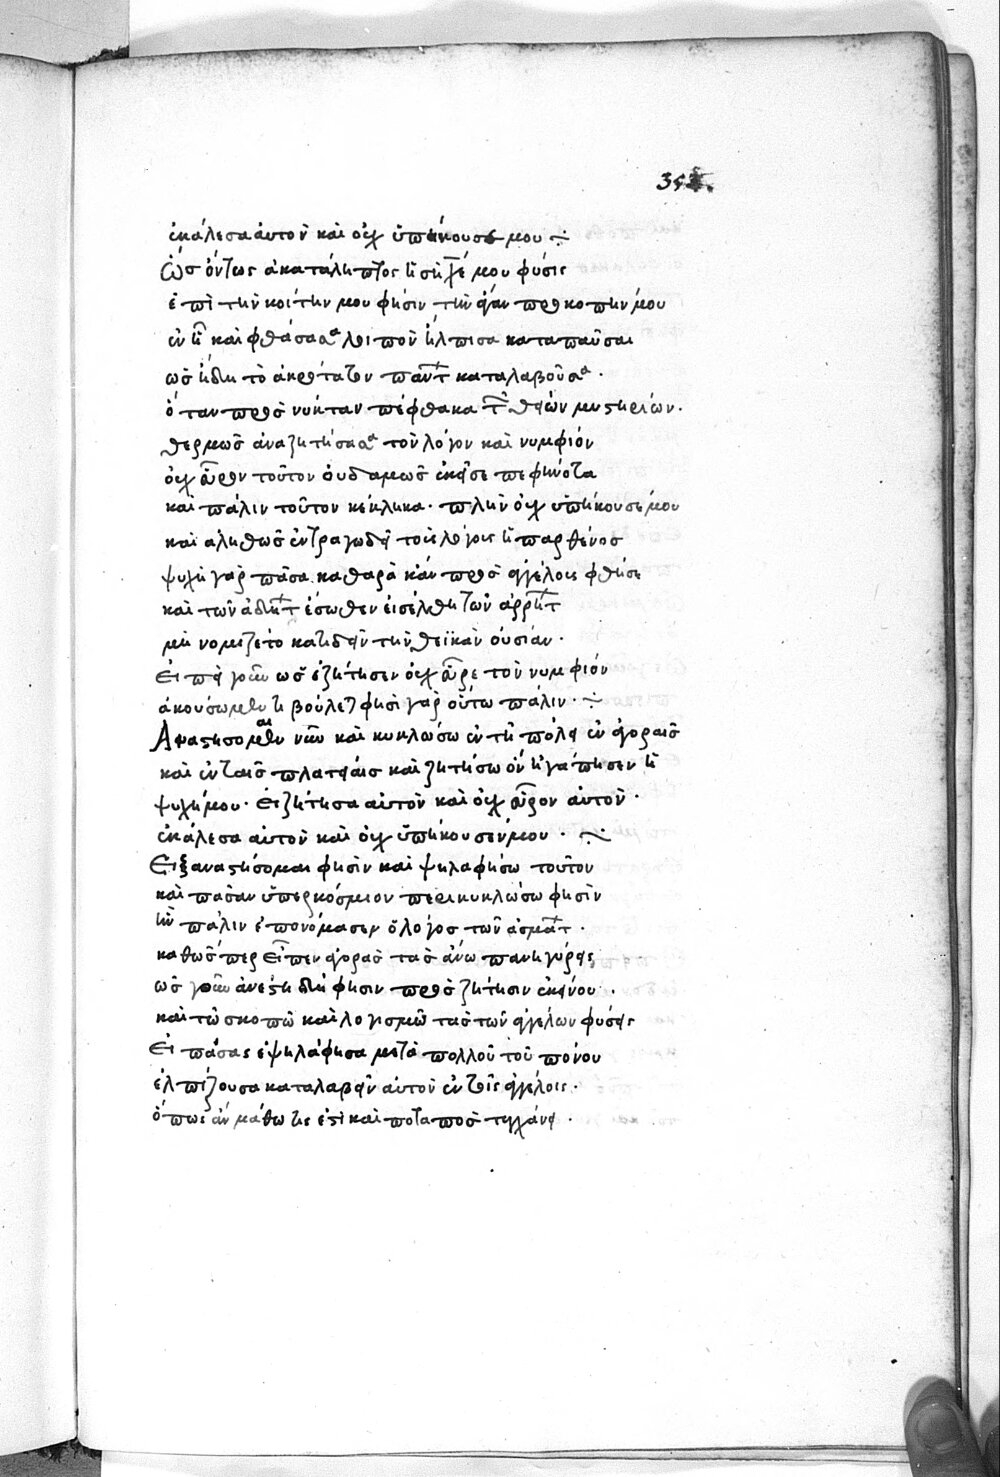 ἐκάλεσα ἀυτὸν καὶ οὐχ ὑπήκουσέ μου ÷
Ὡσ ὄντως ἀκατάληπτος ἡ σὴ μου φύσις
ἐπὶ τὴν κοίτην μου φησιν τὴν προκοπην μου
ἐν ᾗ καὶ φθάσασα λοιπὸν ἤλπισα καταπαῦσαι
ὡσ ἤδη τὸ ἀκρότατον παντ καταλαβοῦσα ·
ὅταν πρὸσ νύκταν πέφθακα τ θείων μυστηρίων ·
θερμῶσ ἀναζητήσασα τὸν λόγον καὶ νυμφίον
οὐχ εὗρον τοῦτον ὀυδαμῶσ ἐκεῖσε πεφηνότα
καὶ πάλιν τοῦτον κέκληκα · πλὴν οὐχ ὑπήκουσέ μου
καὶ ἀληθῶσ ἐντραγωδεῖ τοῖς λόγοις ἡ παρθένοσ
ψυχὴ γὰρ πᾶσα καθαρὰ κἂν πρὸσ ἀγγέλοις φθήσε
καὶ τῶν ἀδύτ ἔσωθεν ἐισέλθη τῶν ἀρρήτ
μὴ νομιζέτο κατιδεῖν τὴν θεϊκὴν ὀυσίαν ·
Εἰπεῖ γοῦν ὡσ ἐζήτησεν οὐχ εὗρε τὸν νυμφιόν
ἀκούσωμεν τί βούλεται φησὶ γὰρ οὕτω πάλιν · ÷
Ἀναστήσομαι νῦν καὶ κυκλώσω ἐν τῇ πόλει ἐν ἀγοραῖσ
καὶ ἐν ταῖσ πλατείαισ καὶ ζητήσω ὃν ἠγάπησεν ἡ
ψυχή μου · Ἐζήτησα αὐτὸν καὶ οὐχ εὗρον αὐτὸν ·
ἐκάλεσα αὐτὸν καὶ οὐχ ὑπήκουσέν μου ·
Ἐξαναστήσομαι φησὶν καὶ ψηλαφήσω τοῦτον
καὶ πᾶσαν ὑπερκόσμιον περικυκλώσω φησὶν
ἣν πάλιν ἐπονόμασεν ὁ λόγοσ τῶν ἀσμάτ ·
καθῶσπερ εἶπεν ἀγορὰσ τὰσ ἄνω πανηγύρεις
ὡσ γοῦν ἀνέστη δή φησιν πρὸσ ζήτησιν ἐκείνου ·
καὶ τῶ σκοπῶ καὶ λογισμῶ τὰσ τῶν ἀγγέλων φύσεις
Ἐπάσας ἐψηλάφησα μετὰ πολλοῦ τοῦ πόνου
ἐλπίζουσα καταλαβεῖν αὐτὸν ἐν τοῖς ἀγγέλοις ·
ὅπως ἂν μάθω τίς ἐστὶ καὶ ποταπὸσ τυγχάνει ·